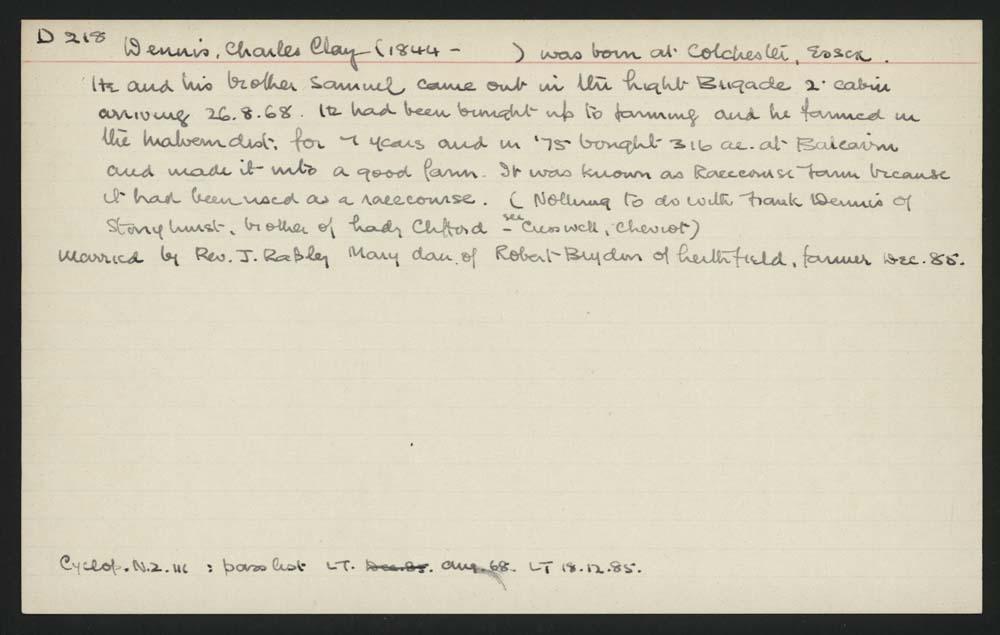 D 218
Dennis, Charles Clay (1844 - ) was born at Colchester, Essex.
He and his brother Samuel came out in the Light Brigade 2. cabin
arriving 26.8.68. He had been brought up to farming and he farmed in
the Malvern dist. for 7 years and in '75 bought 316 ac. at Balcairn
and made it into a good farm. It was known as Racecourse Farm because
it had been used as a racecourse. (Nothing to do with Frank Dennis of
Stonyhurst, brother of Lady Clifford - see Cresswell, Cheviot)
Married by Rev. J. Mary dau. of Robert Brydon of Leithfield, farmer Dec. 85.
Cyclop. N.Z. III : pass list LT. Dec. 85. Aug. 68. LT 18.12.85.